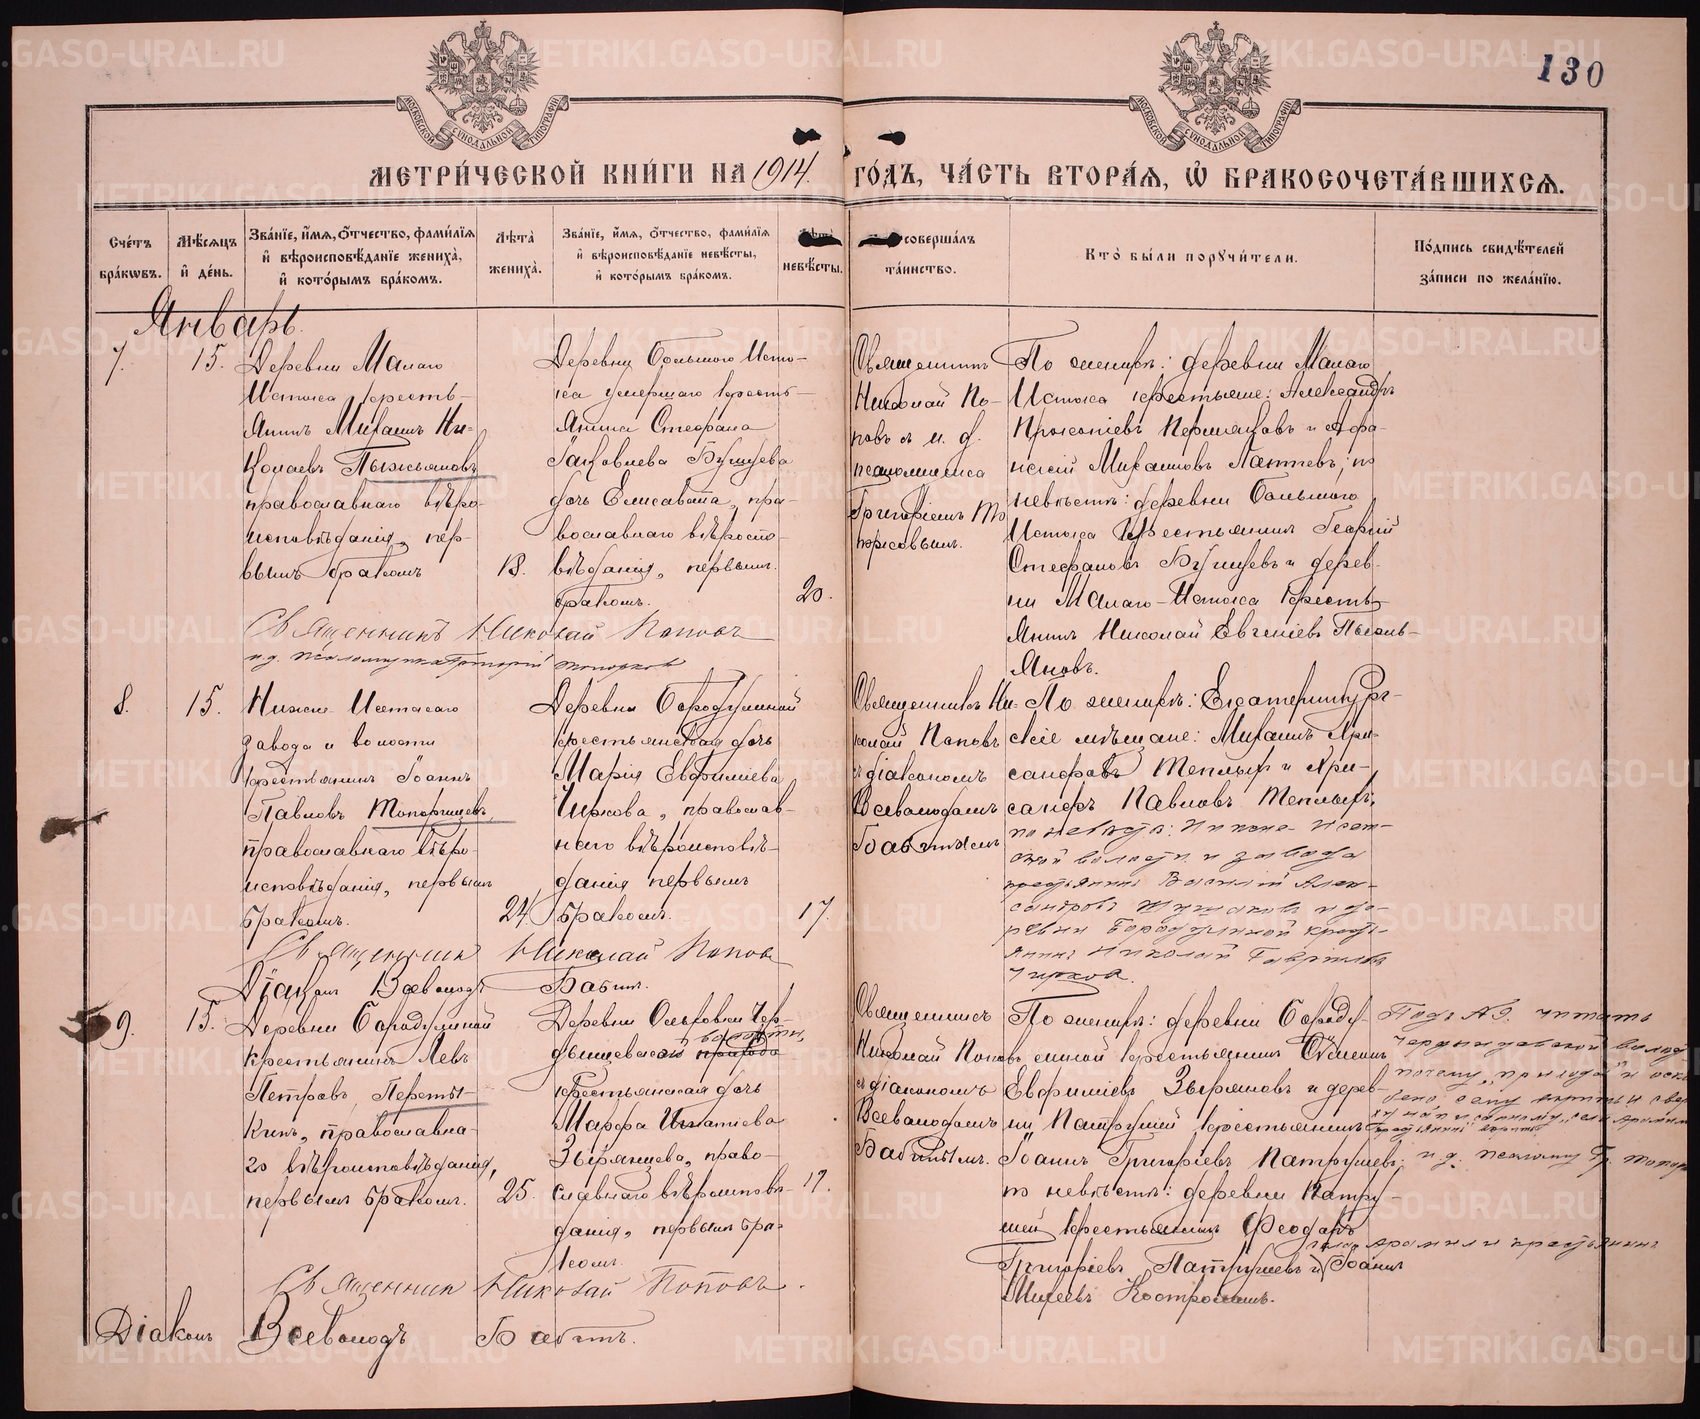 130
МОСКОВСКОЙ СѴНОДАЛЬНОЙ ТИПОГРАФІИ
МОСКОВСКОЙ СѴНОДАЛЬНОЙ ТИПОГРАФІИ
МЕТРИ́ЧЕСКОЙ КНИ́ГИ НА 1914. ГО́ДЪ, ЧА́СТЬ ВТОРА́Я, Ѡ БРАКОСОЧЕТА́ВШИХСЯ.
Сче́тъ бра́кѡвъ.
Мѣ́сяцъ и́ де́нь.
Зва́нїе, и́мя, о́тчество, фами́лїя и́ вѣроисповѣ́данїе жениха̀, и́ кото́рымъ бра́комъ.
Лѣта̀ жениха̀.
Зва́нїе, и́мя, о́тчество, фами́лїя и́ вѣроисповѣ́данїе невѣ́сты, и́ кото́рымъ бра́комъ.
невѣ́сты.
соверша́лъ та́инство.
Кто̀ бы́ли порꙋчи́тели.
По́дпись свидѣ́телей за́писи по жела́нїю.
Январь.
7.
15.
Деревни Малаго
Истока кресть-
янинъ Михаилъ Ни-
колаевъ Пыжьяновъ
православнаго вѣро-
исповѣданія, пер-
вымъ бракомъ
18.
Деревни Большого Исто-
ка умершаго кресть-
янина Стефана
Іаковлева Бушуева
дочь Елисавета, пра-
вославнаго вѣроиспо-
вѣданія, первымъ
бракомъ.
20.
Священникъ
Николай По-
повъ съ и. д.
псаломщика
Григоріемъ То-
порковымъ.
По женихѣ: деревни Малаго
Истока крестьяне: Александръ
Прокопіевъ Пермяковъ и Афа-
насій Михаиловъ Лаптевъ; по
невѣстѣ: деревни Большого
Истока крестьянинъ Георгій
Стефановъ Бушуевъ и дерев-
ни Малаго-Истока кресть-
янинъ Николай Евгеніевъ Пыжь-
яновъ.
Священникъ Николай Поповъ
и. д. псаломщика Григорій Топорков
8.
15.
Нижне-Исетскаго
завода и волости
крестьянинъ Іоаннъ
Павловъ Топорищевъ,
православнаго вѣро-
исповѣданія, первымъ
бракомъ.
24.
Деревни Бородулиной
крестьянская дочь
Марія Евфиміева
Чиркова, православ-
наго вѣроисповѣ-
данія первымъ
бракомъ.
17.
Священникъ Ни-
колай Поповъ
съ діакономъ
Всеволодомъ
Бабинымъ
По женихѣ: Екатеринбург-
скіе мѣщане: Михаилъ Хри-
санфовъ Теплыхъ и Хри-
санфъ Павловъ Теплыхъ,
по невѣстѣ: Нижне-Исет-
ской волости и завода
крестьянинъ Василій Алек-
сандровъ и де-
ревни Бородулиной кресть-
янинъ Николай Гавриловъ
Чирков.
Священник Николай Попов
Діаконъ Всеволодъ Бабинъ.
9.
15.
Деревни Бородулиной
крестьянинъ Левъ
Петровъ Переты-
кинъ, православна-
го вѣроисповѣданія,
первымъ бракомъ.
25.
Деревни
волости,
прихода
крестьянская дочь
Марфа Игнатіева
Зырянцева, право-
славнаго вѣроисповѣ-
данія, первымъ бра-
комъ.
19.
Священникъ
Николай Поповъ
съ діакономъ
Всеволодомъ
Бабинымъ.
По женихѣ: деревни Бороду-
линой крестьянинъ Симеонъ
Евфиміевъ Зыряновъ и дерев-
ни Патрушей крестьянинъ
Іоаннъ Григоріевъ Патрушевъ;
по невѣстѣ: деревни Патру-
шей крестьянинъ Феодоръ
Григоріевъ Патрушевъ и Іоаннъ
села Арамили крестьянинъ
Михеевъ Костроминъ.
Подъ № 9. читать
и. д. псаломщ. Гр. Топор
Священник Николай Поповъ.
Діаконъ Всеволодъ Бабинъ.
METRIKI.GASO-URAL.RU